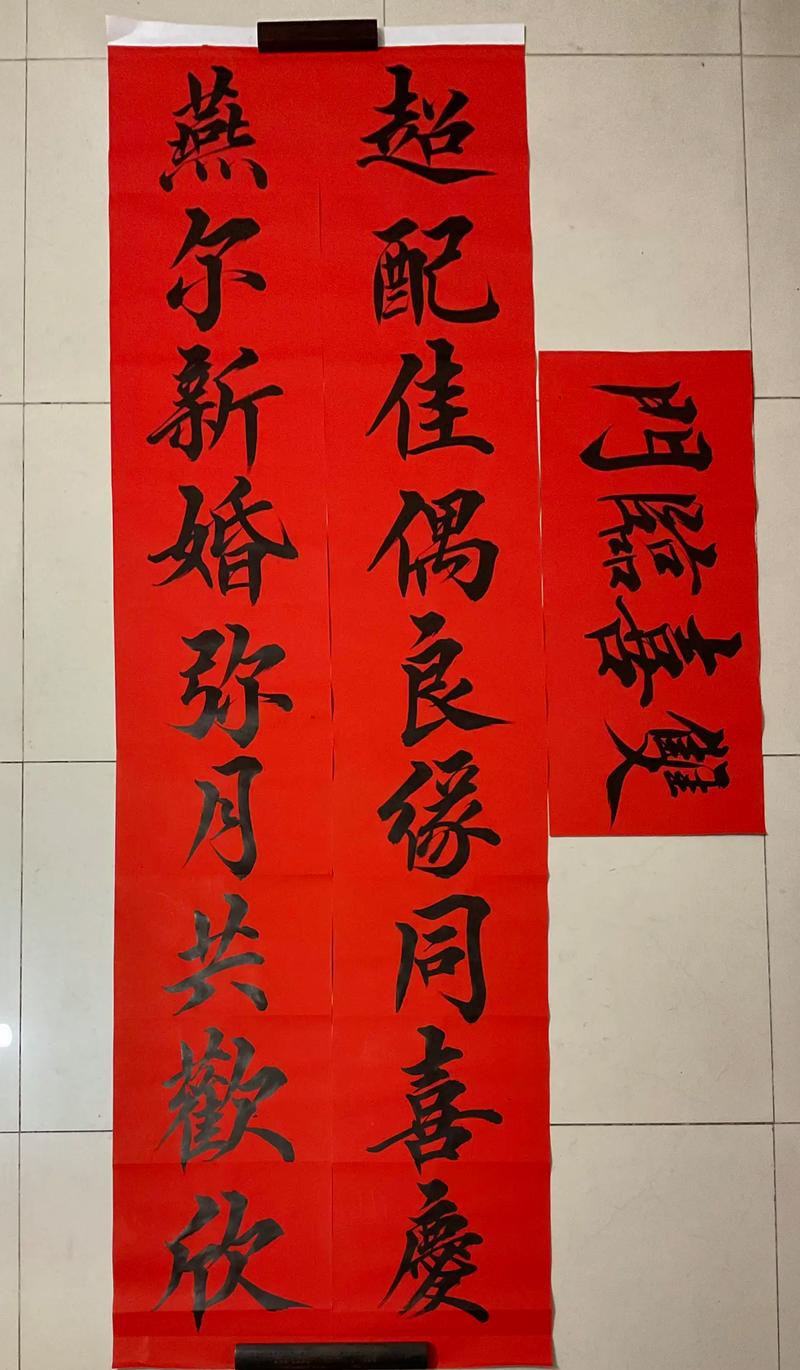 超配佳偶良緣同喜慶
燕尔新婚弥月共歡欣
雙喜臨門